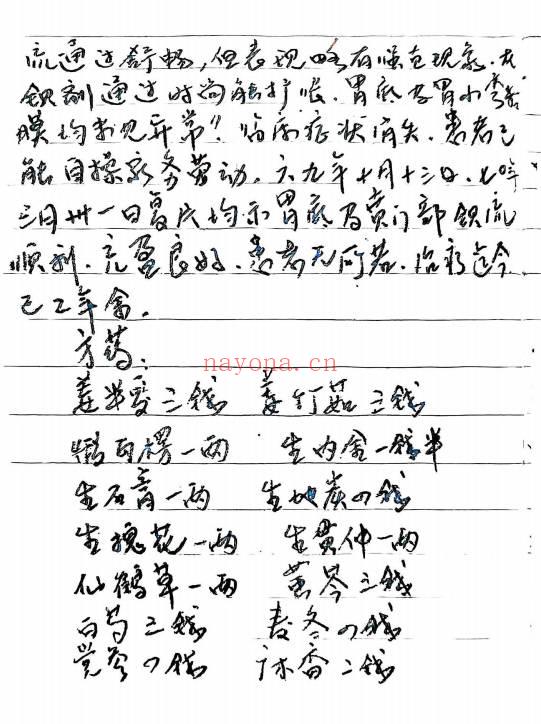 流通过舒畅，但表现略有喉克现象。在
钡剂通过时尚能扩张。胃底及胃小弯粘
膜均未见异常"。临床症状消失。患者已
能自操家务劳动。六九年十月十三日、七〇年
三月卅一日复片均示胃底及贲门部钡流
顺利、充盈良好、患者无所苦。治疗迄今
已2年余。
方药：
nayona.cn
姜半夏三钱 姜竹茹三钱
煅瓦楞一两 生内金一钱半
生石膏一两 生地炭四钱
生槐花一两 生贯仲一两
仙鹤草一两 黄芩三钱
白芍三钱 麦冬四钱
党参四钱 广木香二钱